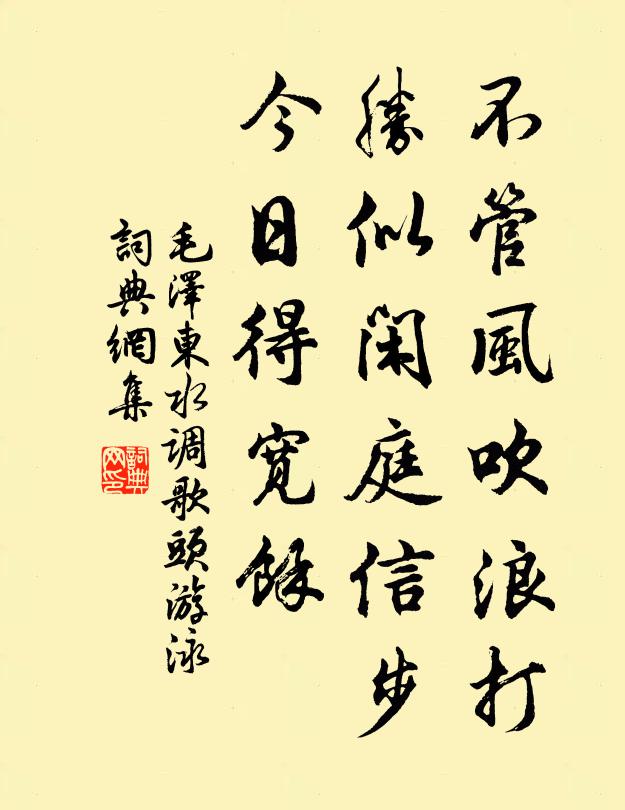 不管風吹浪打
勝似閑庭信步
今日得寬餘
毛澤東水調歌頭游泳
詞典網集
詞典网印